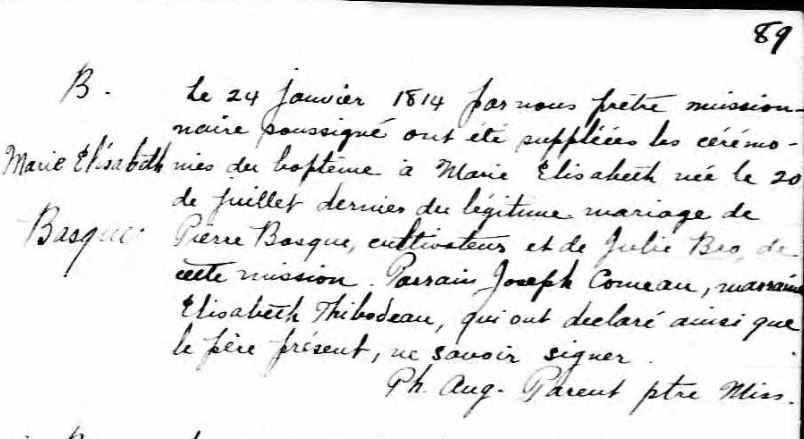 89
B.
Marie Elisabeth
Basque
Le 24 janvier 1814 par nous prêtre mission-
naire soussigné ont été suppléées les cérémo-
nies du baptême à Marie Elisabeth née le 20
de juillet dernier du légitime mariage de
Pierre Basque, cultivateur et de Julie Bro, de
cette mission. Parrain Joseph Comeau, marraine
Elisabeth Thibodeau, qui ont declaré ainsi que
le père présent, ne savoir signer.
Ph. Aug. Parent ptre Miss.